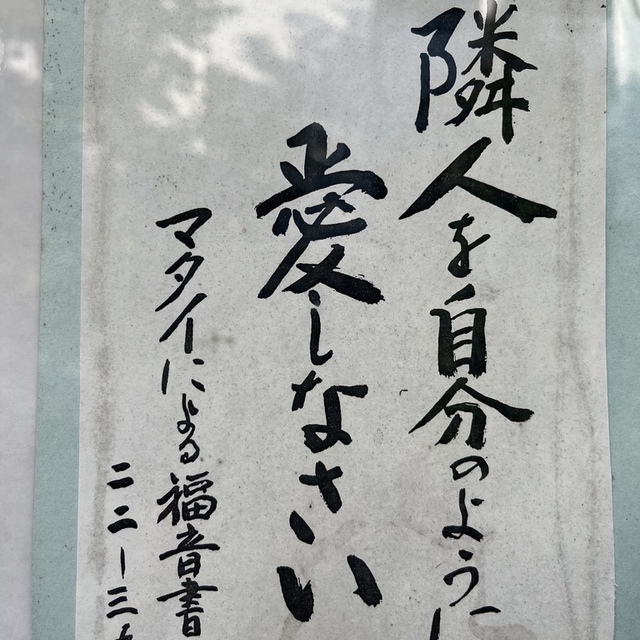 隣人を自分のように
愛しなさい
マタイによる福音書
二二ー三